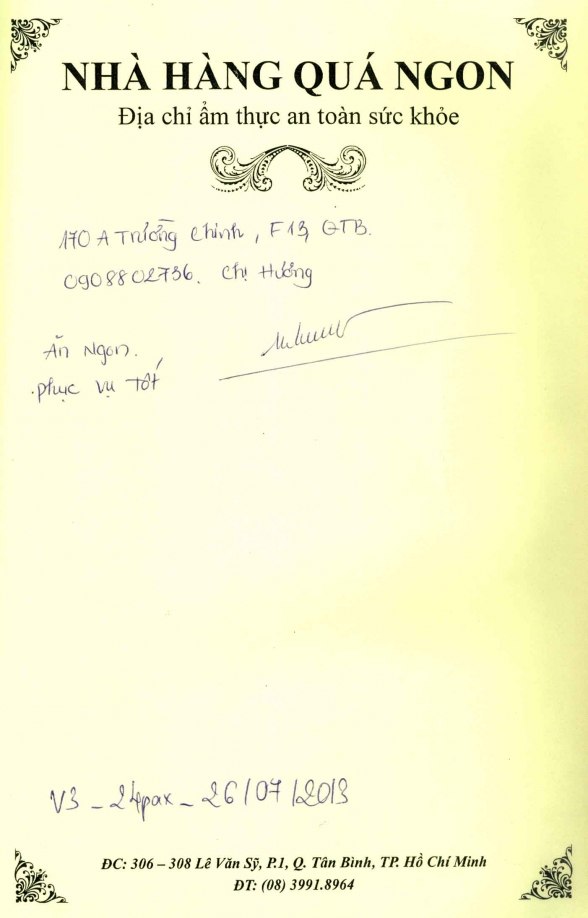 NHÀ HÀNG QUÁ NGON
Địa chỉ ẩm thực an toàn sức khỏe
170 A Trường Chinh, F13, QTB.
0908802736. Chị Hương
Ăn Ngon.
phục vụ Tốt
V3 - 24pax - 26/07/2013
ĐC: 306 – 308 Lê Văn Sỹ, P.1, Q. Tân Bình, TP. Hồ Chí Minh
ĐT: (08) 3991.8964